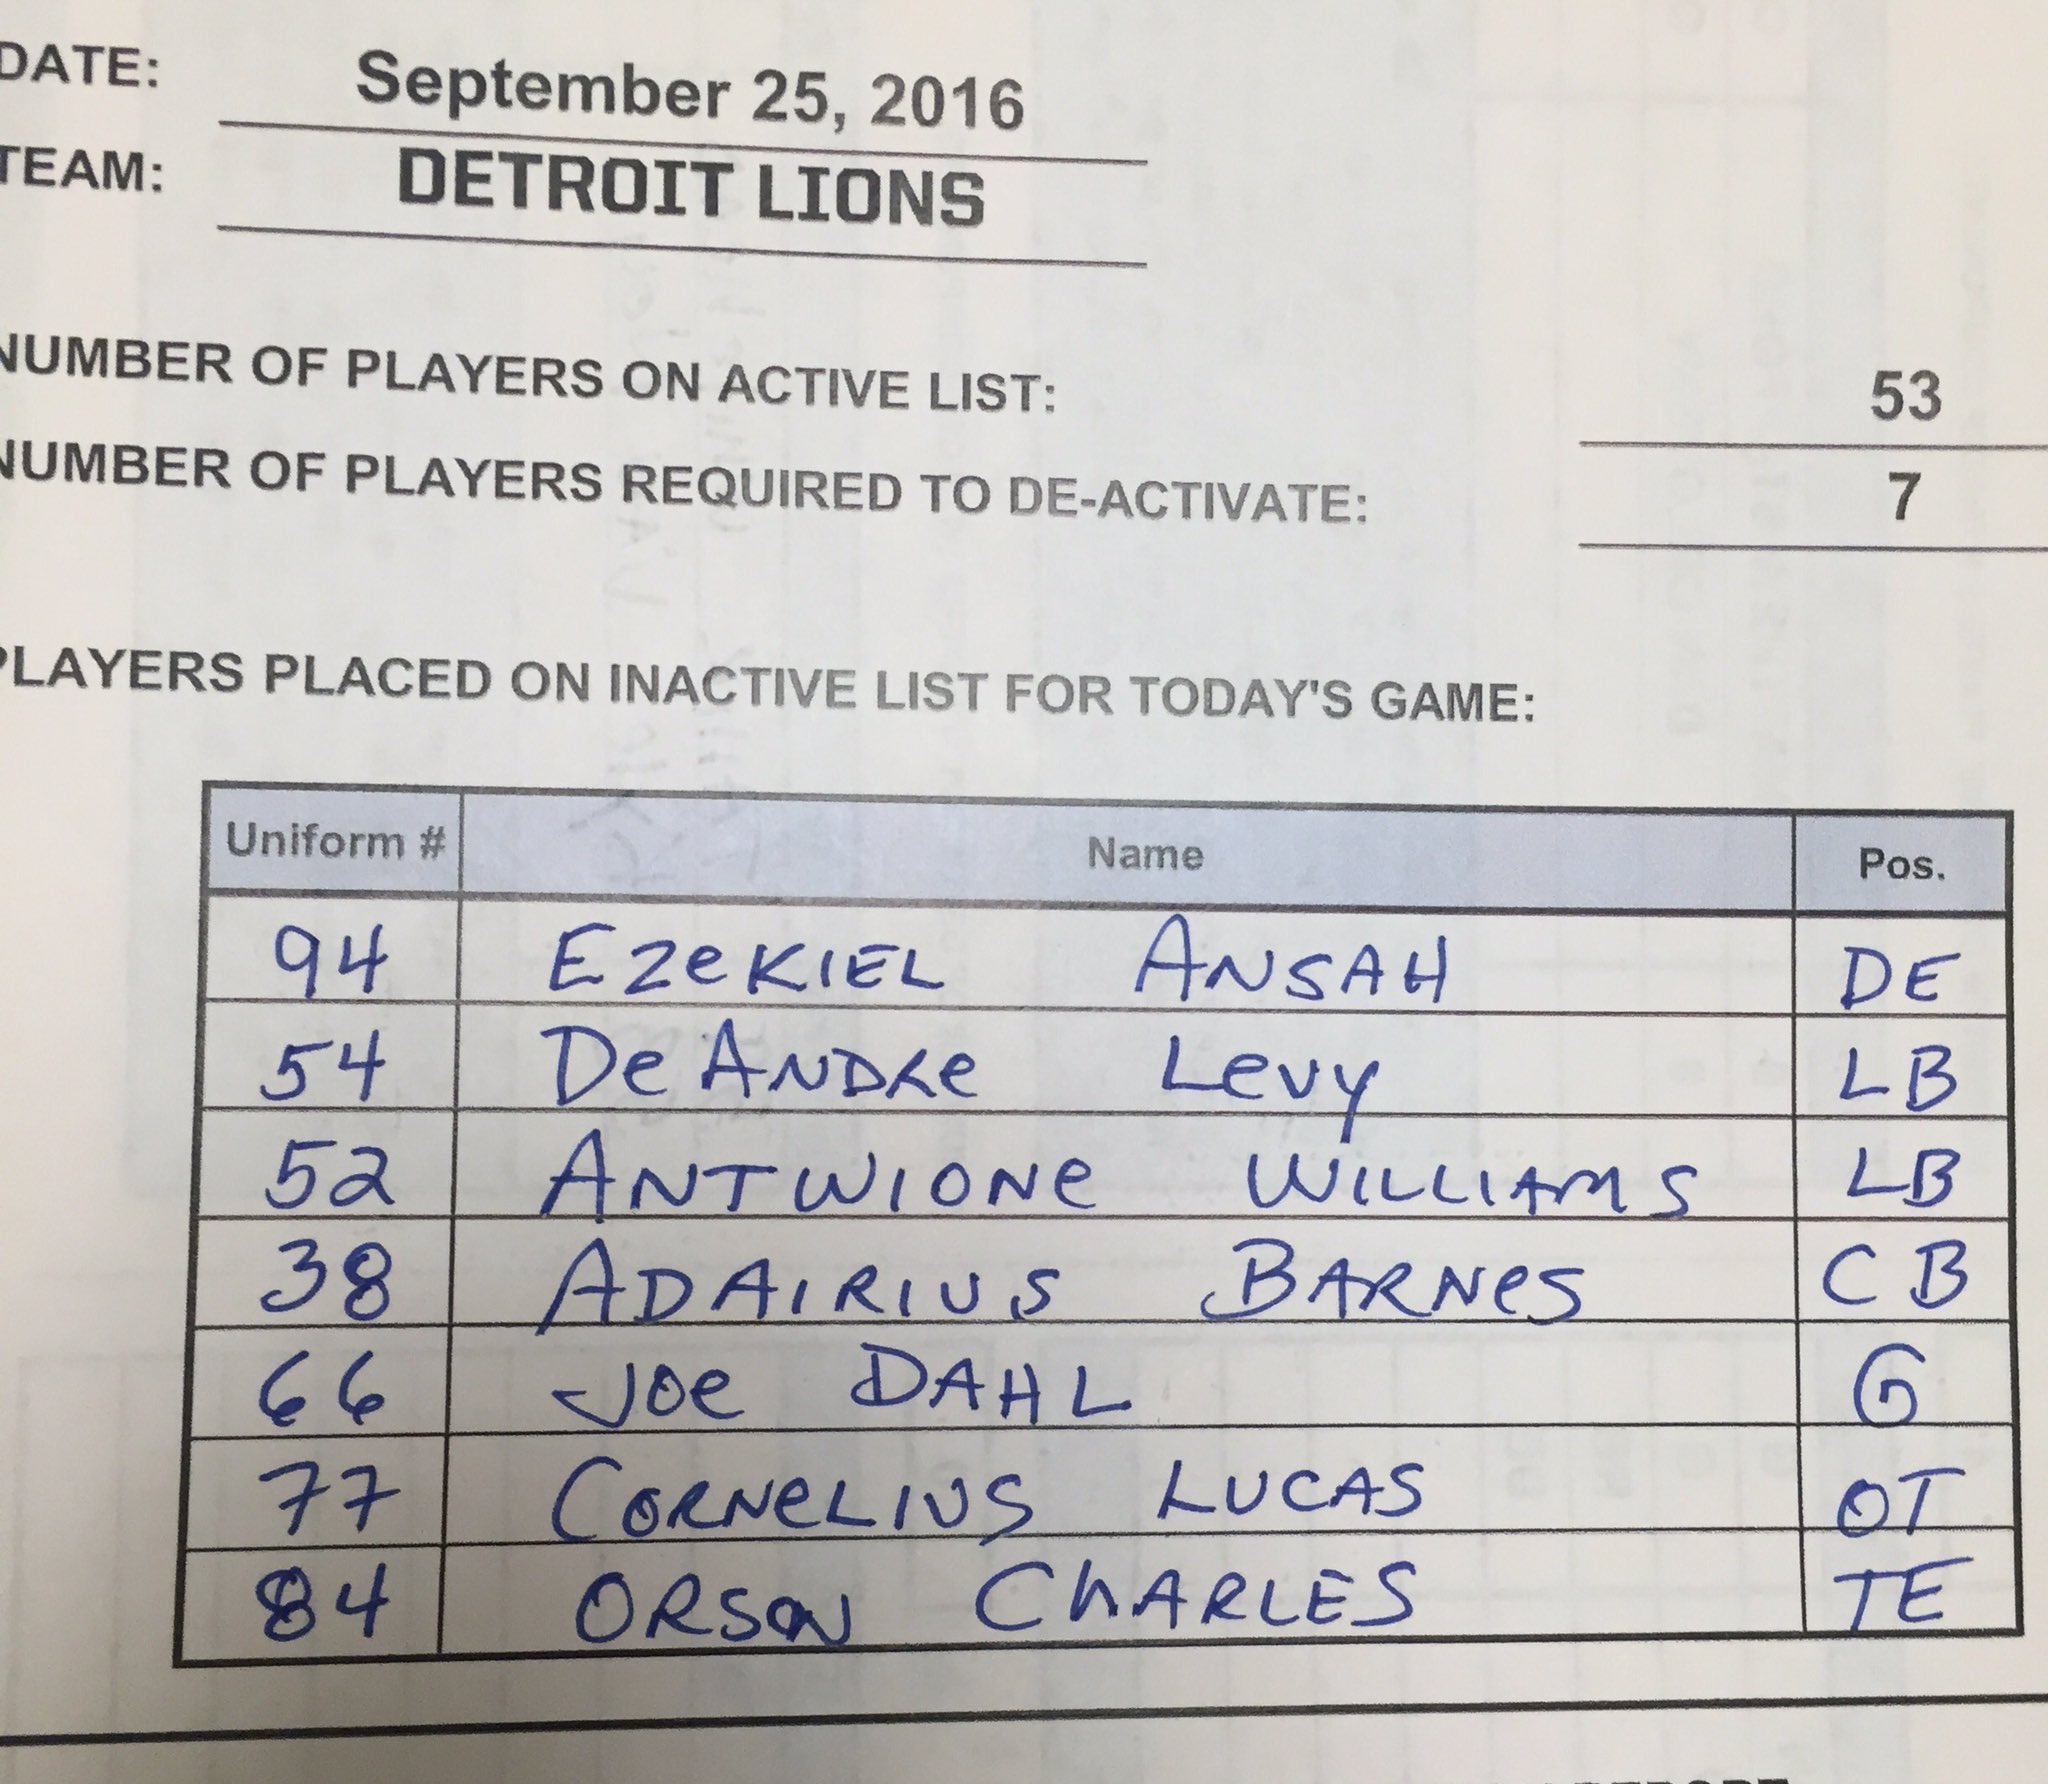 DATE: September 25, 2016
TEAM: DETROIT LIONS
NUMBER OF PLAYERS ON ACTIVE LIST: 53
NUMBER OF PLAYERS REQUIRED TO DE-ACTIVATE: 7
PLAYERS PLACED ON INACTIVE LIST FOR TODAY'S GAME:
Uniform # Name Pos.
94 EZeKIEL ANSAH DE
54 DeANDRe LeVy LB
52 ANTWIONe WILLIAMS LB
38 ADAIRIUS BARNeS CB
66 JOe DAHL G
77 CORNeLIUS LUCAS OT
84 ORSON CHARLES TE